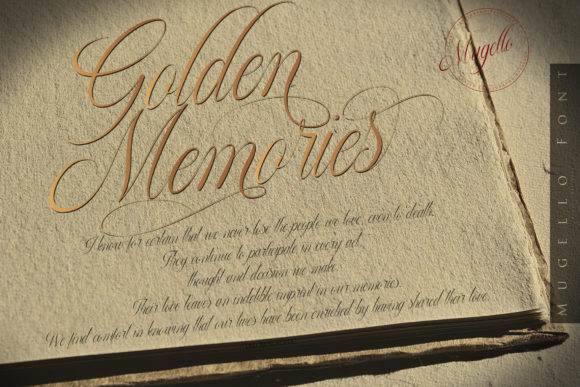 Golden
Memories
I know for certain that we never lose the people we love, even to death.
They continue to participate in every act,
thought and decision we make.
Their love leaves an indelible imprint in our memories.
We find comfort in knowing that our lives have been enriched by having shared their love.
Mugello
MUGELLO FONT